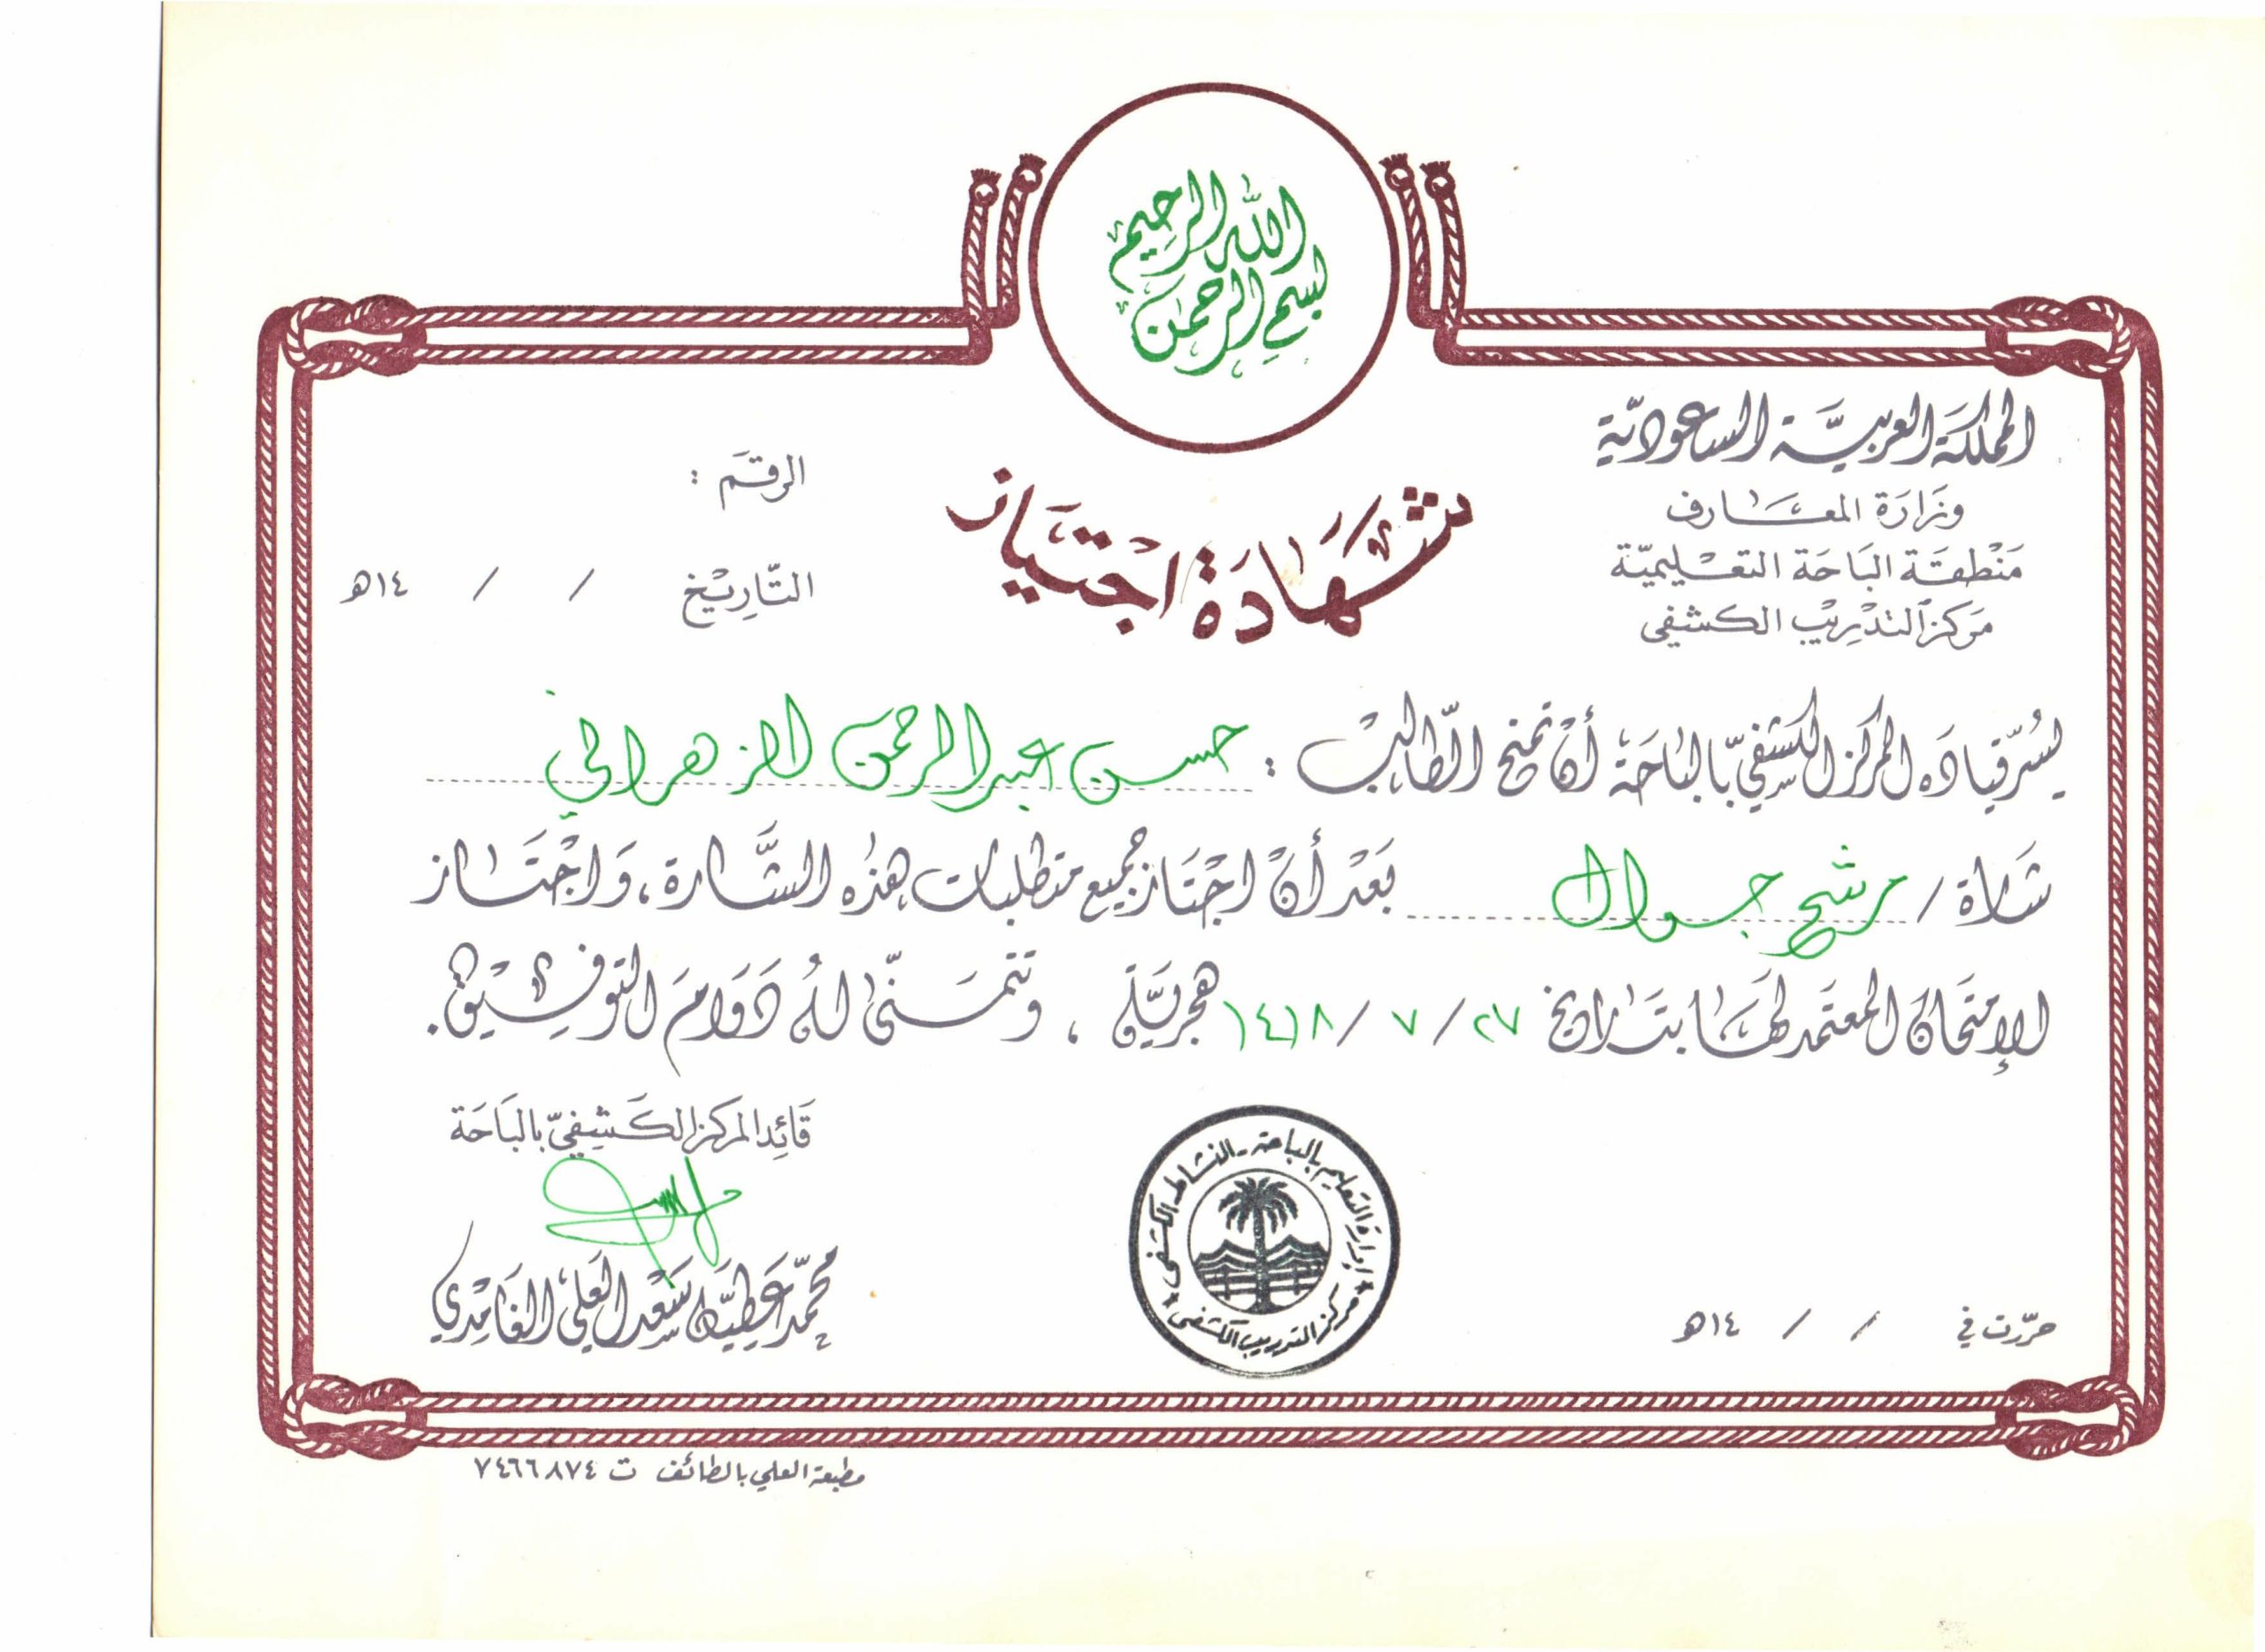 بسم الله الرحمن الرحيم
المملكة العربية السعودية
وزارة المعارف
منطقة الباحة التعليمية
مركز التدريب الكشفي
شهادة اجتياز
الرقم :
التاريخ / / ١٤هـ
يسر قيادة المركز الكشفي بالباحة أن تمنح الطالب : حسن عبدالرحمن الزهراني
شارة / مرشح جوال بعد أن اجتاز جميع متطلبات هذه الشارة ، واجتاز
الإمتحان المعتمد لها بتاريخ ٢٧ / ٧ / ١٤١٨ هجرية ، ونتمنى له دوام التوفيق .
قائد المركز الكشفي بالباحة
محمد عطية سعد العلي الغامدي
إدارة التعليم بالباحة - النشاط الكشفي
مركز التدريب الكشفي
حررت في / / ١٤هـ
مطبعة العلي بالطائف ت ٧٤٦٦٨٧٤